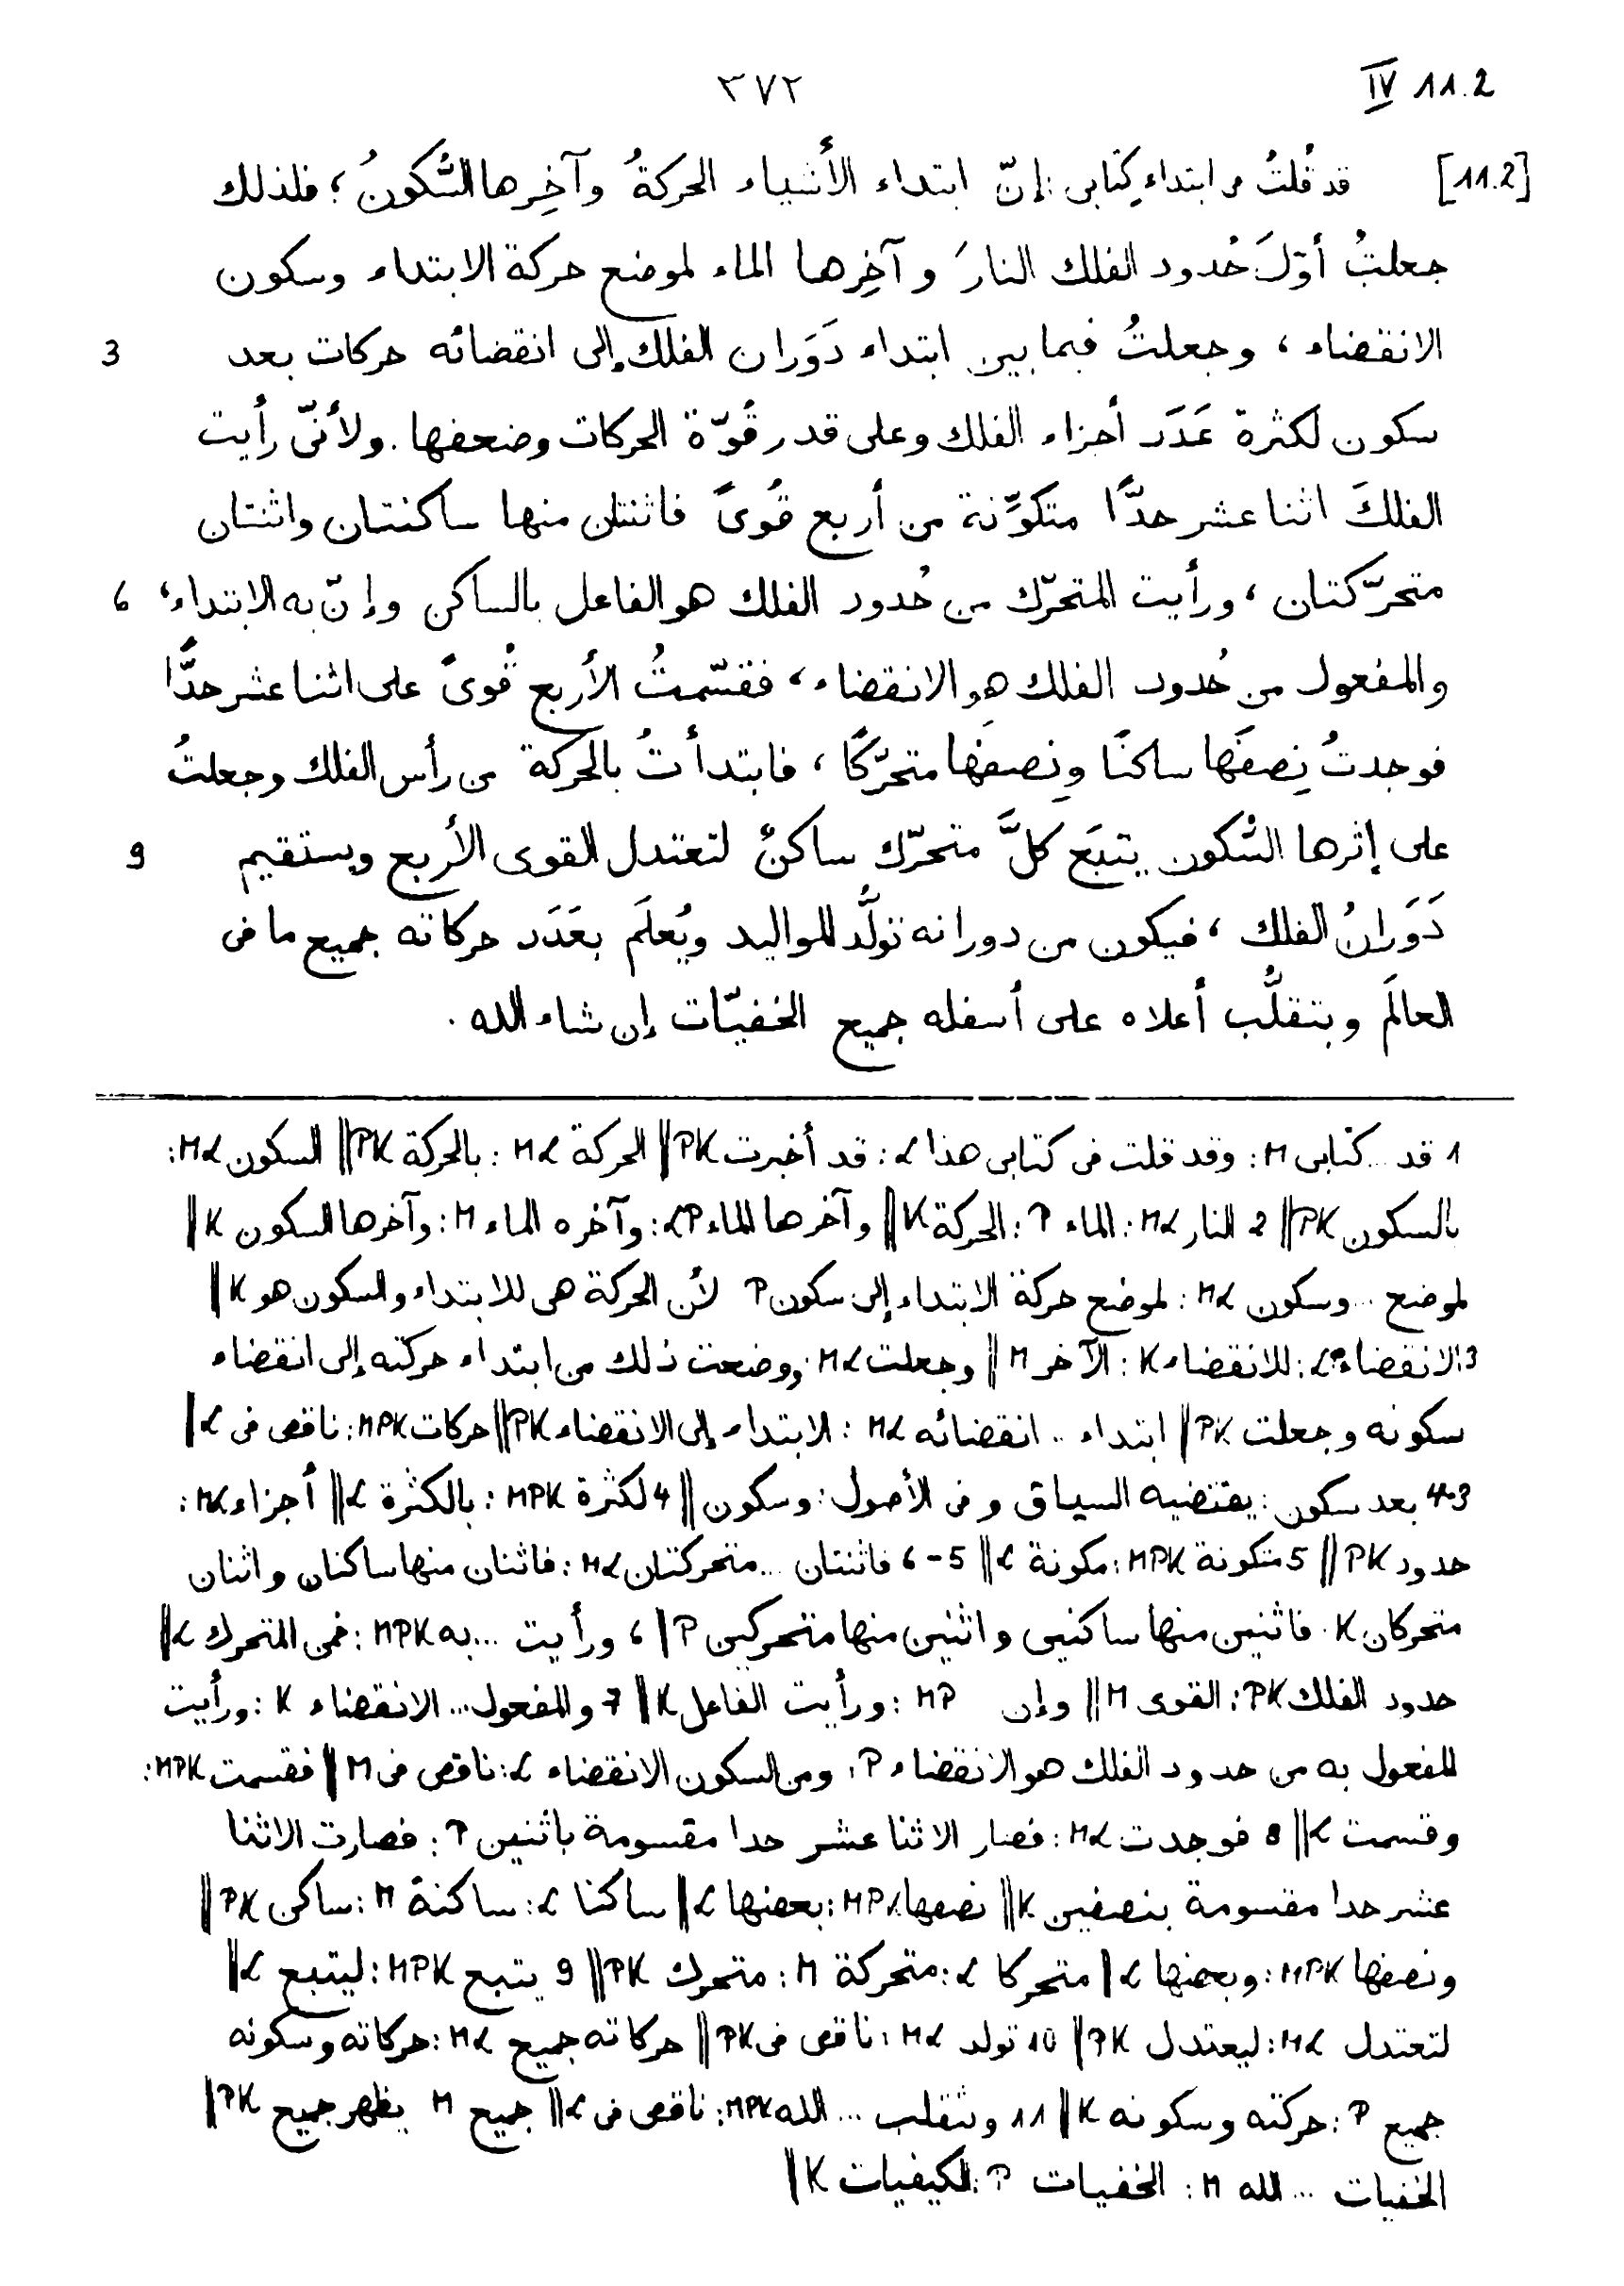 IV 11.2
٣٧٢
[11.2] قد قُلتُ من ابتداء كِتابى : إنّ ابتداء الأشياء الحركةُ وآخِرها السُّكونُ ؛ فلذلك
جعلتُ أوّلَ حُدود الفلك النارَ وآخِرها الماء لموضع حركة الابتداء وسكون
3 الانقضاء ، وجعلتُ فيما بين ابتداء دَوَران الفلك إلى انقضائه حركات بعد
سكون لكثرة عَدَد أجزاء الفلك وعلى قدر قُوّة الحركات وضعفها . ولأنّى رأيت
الفلكَ اثنا عشر حدًّا متكوِّنة من أربع قُوىً فاثنتان منها ساكنتان واثنتان
6 متحرّكتان ، ورأيت المتحرّك من حُدود الفلك هو الفاعل بالساكن وإنّ به الابتداء ،
والمفعول من حُدود الفلك هو الانقضاء ، فقسّمتُ الأربع قُوىً على اثنا عشر حدًّا
فوجدتُ نِصفَها ساكنًا ونِصفَها متحرّكًا ، فابتدأتُ بالحركة من رأس الفلك وجعلتُ
9 على إثرها السُّكون يتبَع كلَّ متحرّك ساكنٌ لتعتدل القوى الأربع ويستقيم
دَوَرانُ الفلك ، فيكون من دورانه تولُّد للمواليد ويُعلَم بعَدَد حركاته جميع ما فى
العالَم وبتقلُّب أعلاه على أسفله جميع الخفيّات إن شاء الله .
1 قد ... كتابى M : وقد قلت فى كتابى هذا L : قد أخبرت PK || الحركة ML : بالحركة PK || السكون ML :
بالسكون PK || 2 النار ML : الماء P : الحركة K || وآخرها الماء LP : وآخره الماء M : وآخرها السكون K ||
لموضع ... وسكون ML : لموضع حركة الابتداء إلى سكون P لأن الحركة هى للابتداء والسكون هو K ||
3 الانقضاء LP : للانقضاء K : الآخر M || وجعلت ML : ووضعت ذلك من ابتداء حركته إلى انقضاء
سكونه وجعلت PK || ابتداء ... انقضائه ML : الابتداء إلى الانقضاء PK || حركات MPK : ناقص فى L ||
4-3 بعد سكون : يقتضيه السياق وفى الأصول : وسكون || 4 لكثرة MPK : بالكثرة L || أجزاء ML :
حدود PK || 5 متكونة MPK : مكونة L || 5-6 فاثنتان ... متحركتان ML : فاثنان منها ساكنان واثنان
متحركان K . فاثنين منها ساكنين واثنين منها متحركين P || 6 ورأيت ... به MPK : فمن المتحرك L ||
حدود الفلك PK : القوى M || وإن MP : ورأيت الفاعل K || 7 والمفعول ... الانقضاء K : ورأيت
المفعول به من حدود الفلك هو الانقضاء P : ومن السكون الانقضاء L : ناقص فى M || فقسمت MPK :
وقسمت L || 8 فوجدت ML : فصار الاثنا عشر حدا مقسومة باثنين P : فصارت الاثنا
عشر حدا مقسومة بنصفين K || نصفها MPK : بعضها L || ساكنا L : ساكنة M : ساكن PK ||
ونصفها MPK : وبعضها L || متحركا L : متحركة M : متحرك PK || 9 يتبع MPK : ليتبع L ||
لتعتدل ML : ليعتدل PK || 10 تولد ML : ناقص فى PK || حركاته جميع ML : حركاته وسكونه
جميع P : حركته وسكونه K || 11 وبتقلب ... الله MPK : ناقص فى L || جميع M يظهر جميع PK ||
الخفيات ... الله M : الخفيات P : الكيفيات K ||